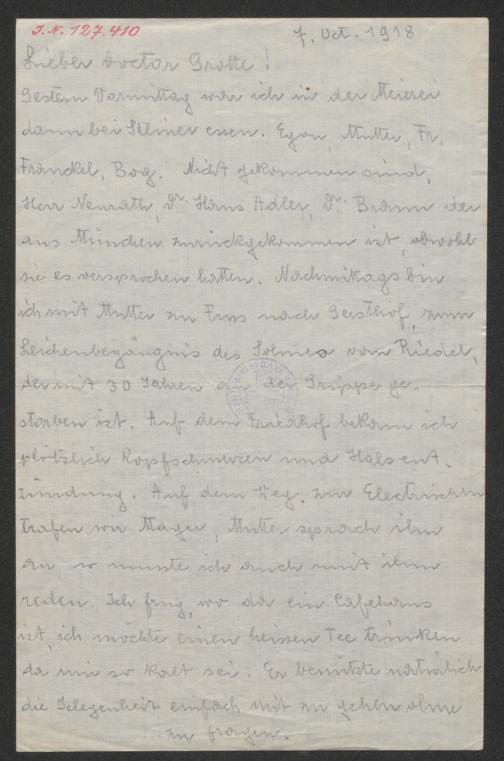 J.N. 127.410
7. Oct. 1918
Lieber Doctor Grotte!
Gestern Vormittag war ich in der Meierei
dann bei Steiner essen. Egon, Mutter, Fr.
Franckel, Bog. Nicht gekommen sind,
Herr Neurath, Dr. Hans Adler, Dr. Braun der
aus München zurückgekommen ist, obwohl
sie es versprochen hatten. Nachmittags bin
ich mit Mutter zu Fuss nach Gersthof, zum
Leichenbegängnis des Sohnes von Riedel,
der mit 30 Jahren an der Grippe ge-
storben ist. Auf dem Friedhof bekam ich
plötzlich Kopfschmerzen und Halsent-
zündung. Auf dem Weg zur Electrischen
trafen wir Mayer, Mutter sprach ihn
an, so musste ich auch mit ihm
reden. Ich frug, wo da ein Cafehaus
ist, ich möchte einen heissen Tee trinken
da mir so kalt sei. Er benützte natürlich
die Gelegenheit einfach mit zu gehen ohne
zu fragen.